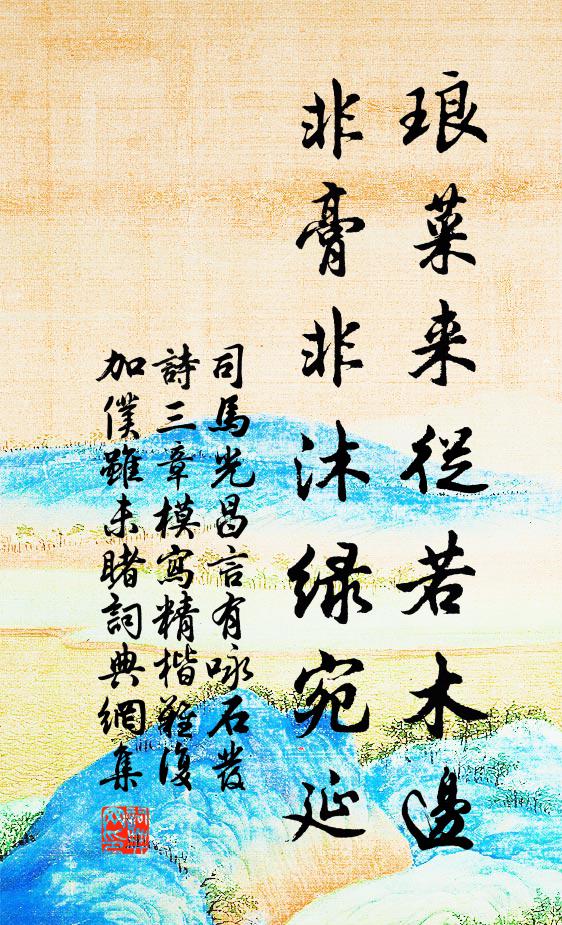 琅菜来從若木邊
非膏非沐緑宛延
司馬光昌言有咏石發
詩三章模寫精楷難復
加僕雖未睹詞典網集